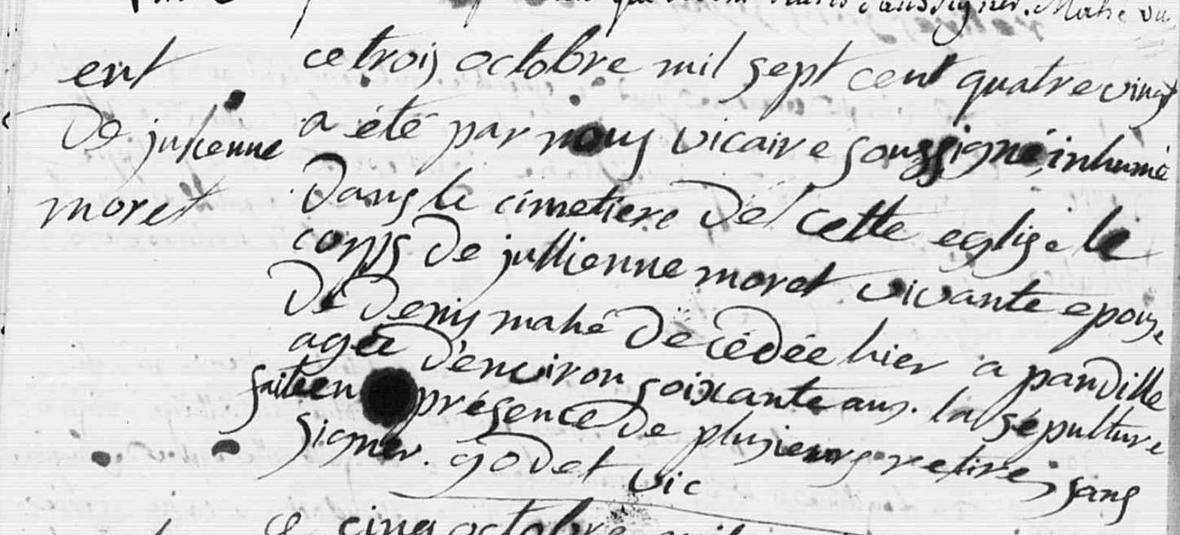 ent
De julienne
moret
ce trois octobre mil sept cent quatre vingt
a été par nous vicaire soussigné, inhumé
Dans le cimetiere De cette eglise le
corps De jullienne moret vivante epouse
De Denis mahé Decédée hier a pandille
agée D'environ soixante ans. la sépulture
faite en présence De plusieurs retirés sans
signer. godet vic
cinq octobre